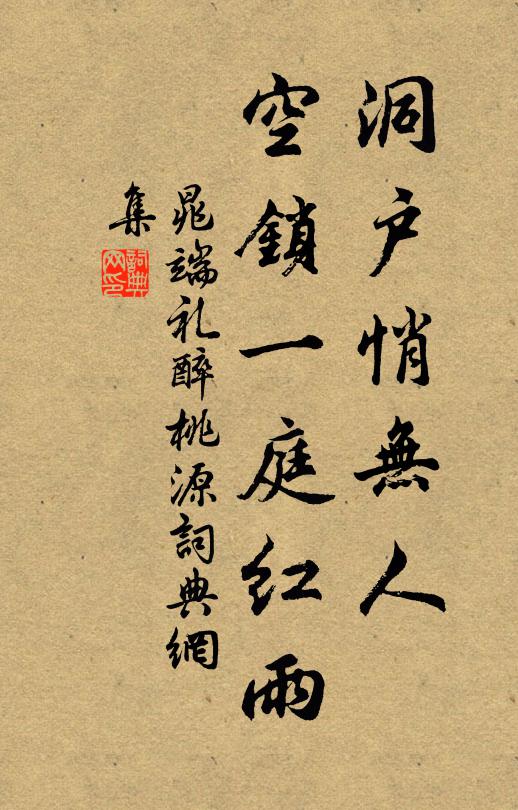 洞户悄無人
空鎖一庭红雨
晁端礼醉桃源詞典網
集
詞典
网印